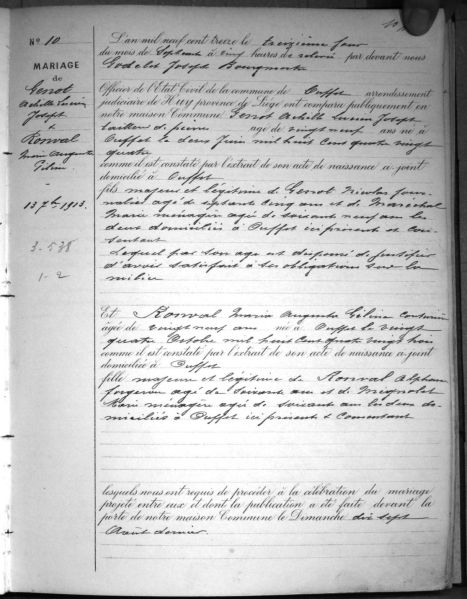 N° 10
MARIAGE
de
Genot
Achille Lucien
Joseph
&
Ronval
Marie Augusta
13 7bre 1913.
3-538
1-2
L'an mil neuf cent treize le treizième jour
du mois de Septembre à cinq heures de relevée par devant nous
Godelet Joseph Bourgmestre
Officier de l'Etat Civil de la commune de Ouffet arrondissement
judiciaire de Huy province de Liége ont comparu publiquement en
notre maison Commune Genot Achille Lucien Joseph
tailleur de pierre âgé de vingt neuf ans né à
Ouffet le deux Juin mil huit cent quatre vingt
quatre
comme il est constaté par l'extrait de son acte de naissance ci-joint
domicilié à Ouffet
fils majeur et légitime de Genot Nicolas jour-
nalier agé de septante cinq ans et de Maréchal
Marie ménagère agée de soixante neuf ans les
deux domiciliés à Ouffet ici présents et con-
sentant
Lequel par son age est dispensé de justifier
d'avoir satisfait à ses obligations sur la
milice
Et Ronval Marie Augusta Céline Couturière
âgée de vingt neuf ans née à Ouffet le vingt
quatre Octobre mil huit Cent quatre vingt trois
comme il est constaté par l'extrait de son acte de naissance ci-joint
domiciliée à Ouffet
fille majeure et légitime de Ronval Alphonse
forgeron agé de soixante ans et de Mignolet
Marie ménagère agée de soixante ans les deux do-
miciliés à Ouffet ici présents & Consentant
lesquels nous ont requis de procéder à la célébration du mariage
projeté entre eux et dont la publication a été faite devant la
porte de notre maison Commune le Dimanche dix sept
Août dernier.